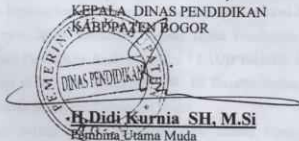 KEPALA DINAS PENDIDIKAN
KABUPATEN BOGOR
PEMERINTAH KABUPATEN
DINAS PENDIDIKAN
H.Didi Kurnia SH, M.Si
Pembina Utama Muda